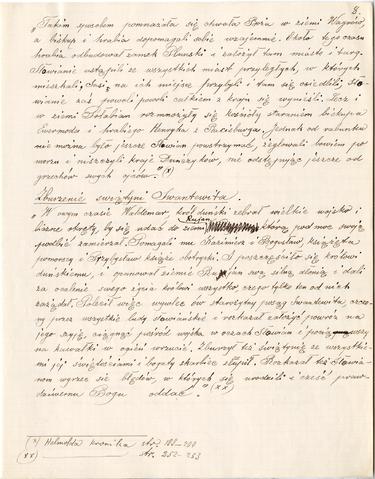 8.
„Takim sposobem pomnażała się chwała Boża w ziemi Wagrów,
a biskup i hrabia dopomagali sobie wzajemnie. Około tego czasu
hrabia odbudował zamek Pluński i założył tam miasto i targ.
Sławianie ustąpili ze wszystkich miast przyległych, w których
mieszkali, Sasi na ich miejsce przybyli i tam się osiedlili, sła-
wianie zaś powoli powoli całkiem z kraju się wynieśli. Lecz i
w ziemi Połabian rozmnożyły się kościoły staraniem biskupa
Ewermoda i hrabiego Henryka z Raciborga. Jednak od rabunku
nie można było jeszcze Sławian powstrzymać, żeglowali bowiem po
morzu i niszczyli kraje Duńczyków, nie odstępując jeszcze od
grzechów swych ojców." (x)
Zburzenie świątyni Swantewita.
„W owym czasie Waldemar, król duński zebrał wielkie wojsko i
liczne okręty, by się udać do ziemi Rujan, którą pod moc swoją
podbić zamierzał. Pomagali mu Kazimierz i Bogusław, książęta
pomorscy i Przybysław książę obotrycki. I poszczęściło się królowi
duńskiemu, i opanował ziemię Rujan swą silną dłonią i dali
za ocalenie swego życia królowi wszystko, czego tylko ten od nich
zażądał. Polecił więc wywlec ów starożytny posąg Swantewita, czczo-
ny przez wszystkie ludy sławiańskie i rozkazał założyć powróz na
jego szyję, ciągnąć pośród wojska w oczach Sławian i porąbawszy
na kawałki w ogień wrzucić. Zburzył też świątynię ze wszystkie-
mi jej świętościami i bogaty skarbiec złupił. Rozkazał też Sławia-
nom wyrzec się błędów, w których się urodzili i cześć praw-
dziwemu Bogu oddać." (xx)
(x) Helmolda kronika str. 188-200
(xx) " " str. 252-253